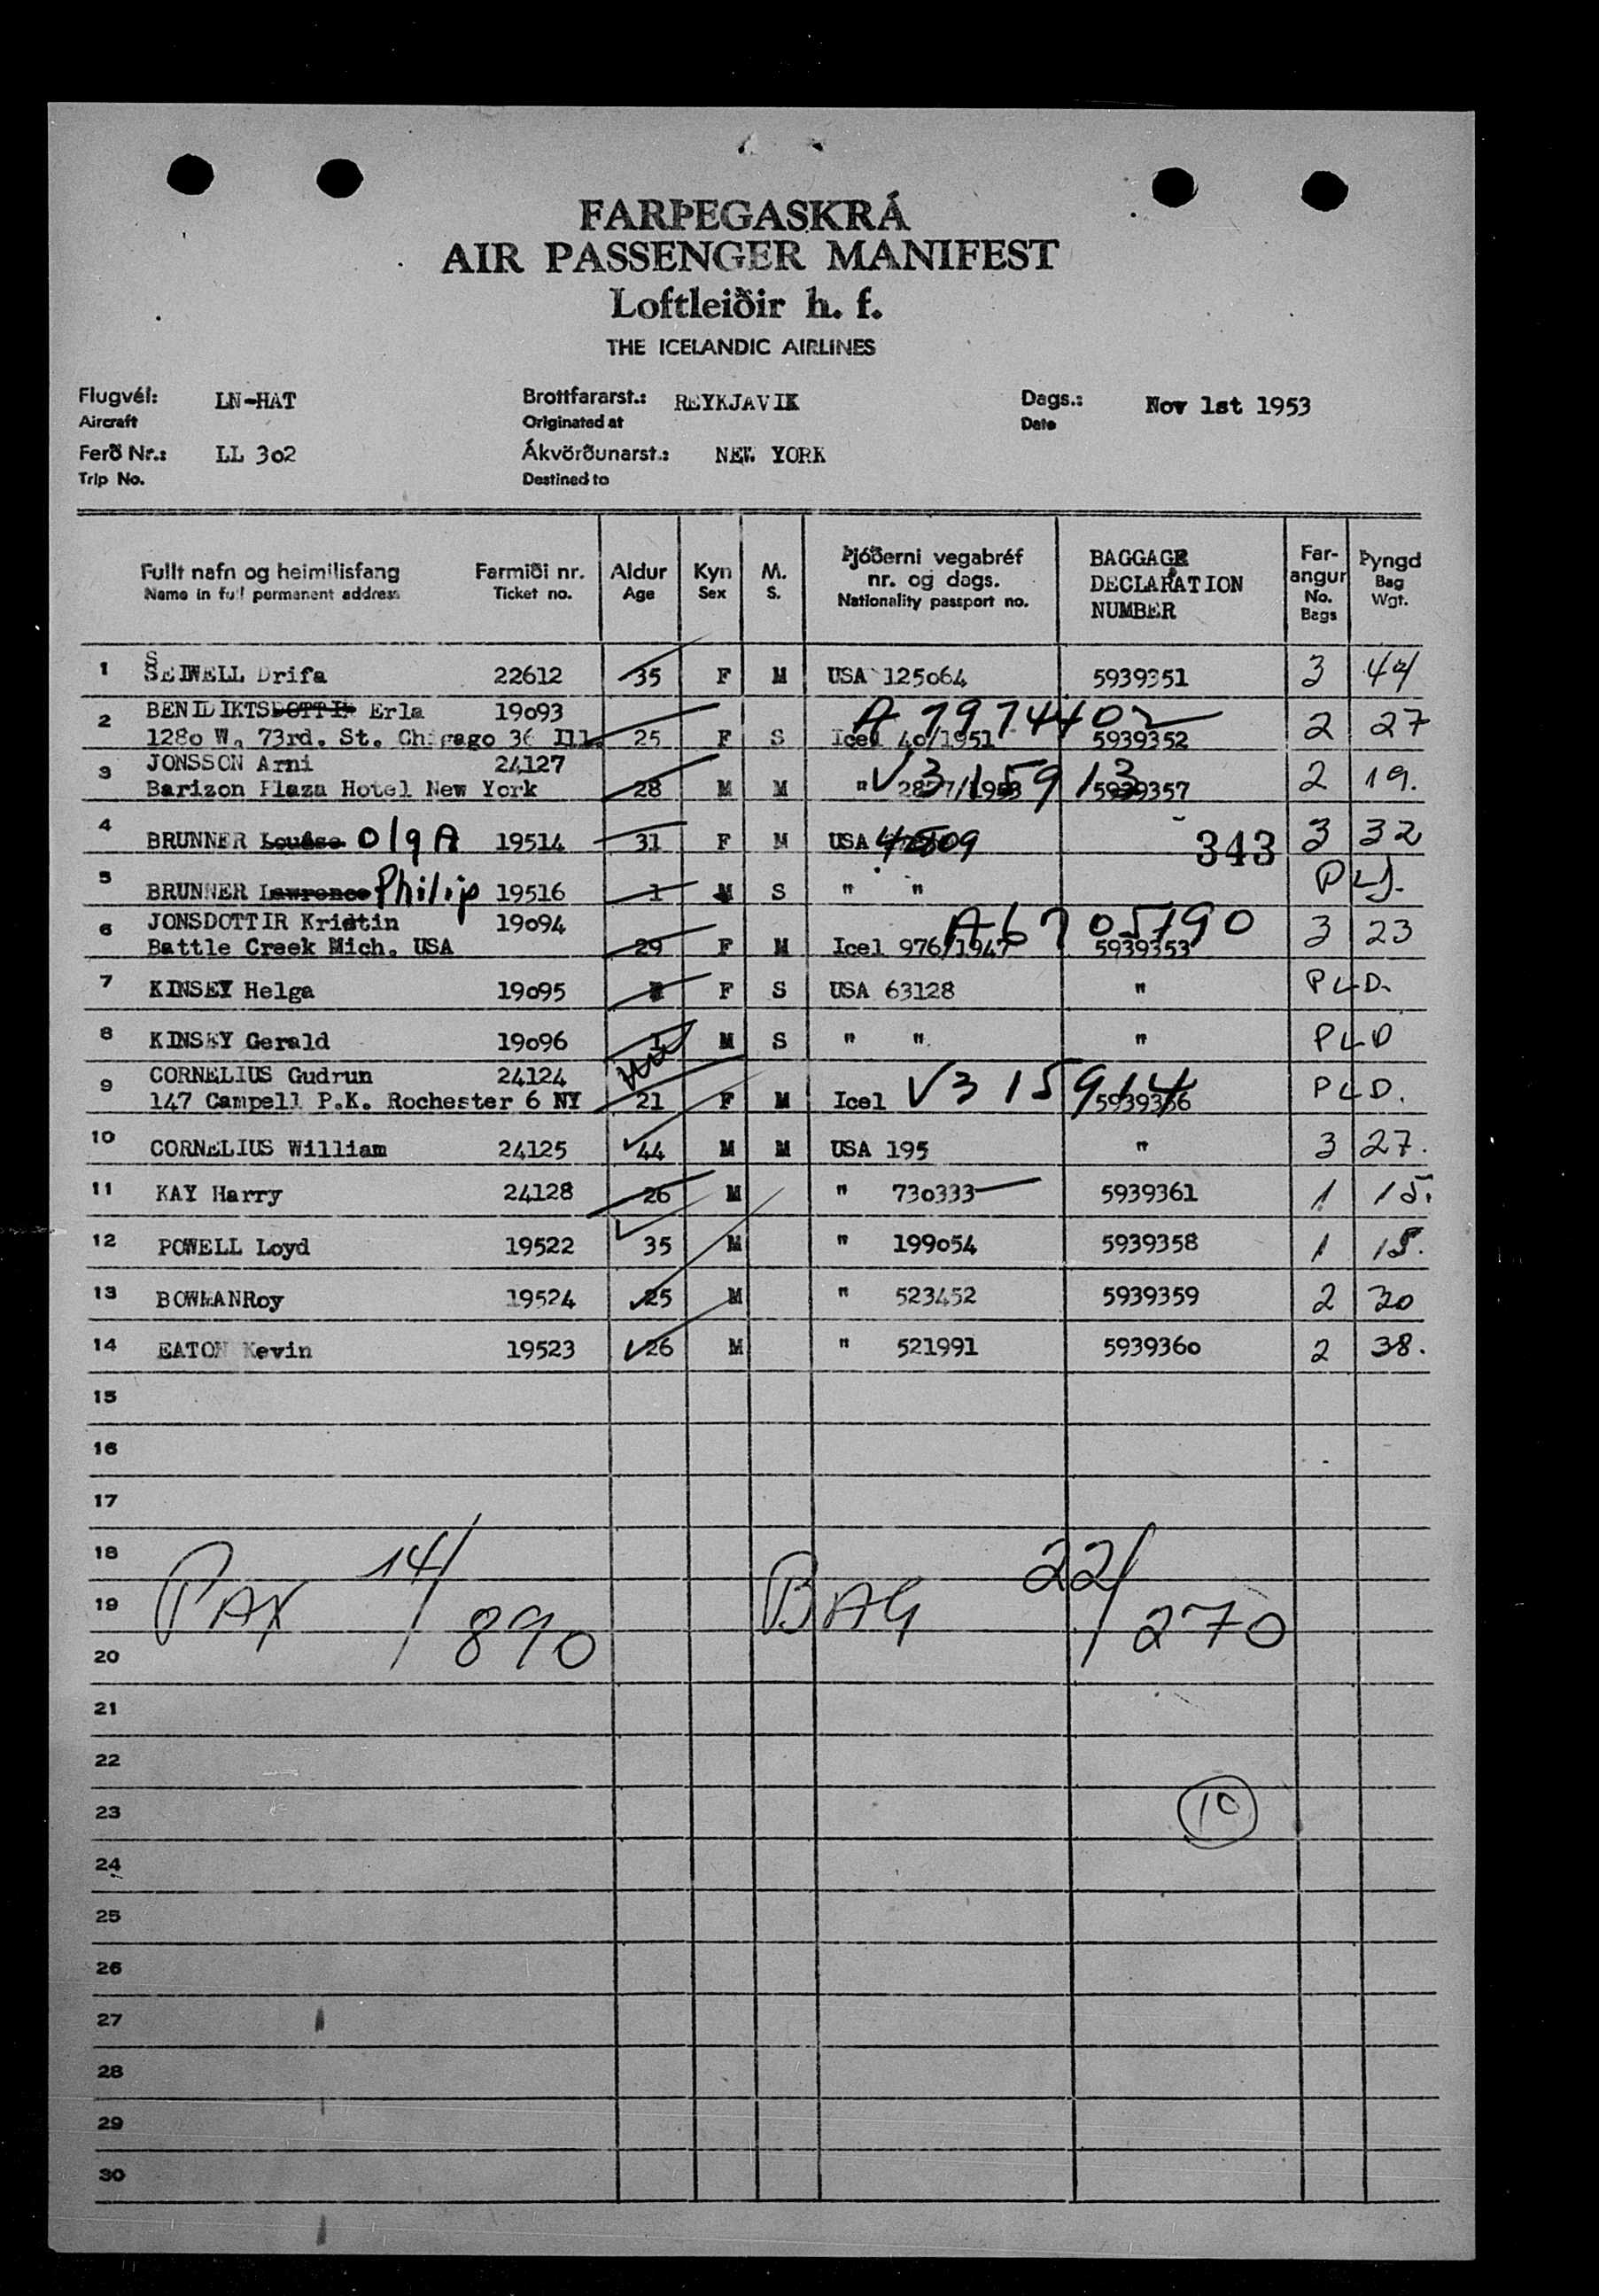 FARÞEGASKRÁ
AIR PASSENGER MANIFEST
Loftleiðir h. f.
THE ICELANDIC AIRLINES
Flugvél: LN-HAT Brottfararst.: REYKJAVIK Dags.: Nov 1st 1953
Aircraft Originated at Date
Ferð Nr.: LL 302 Ákvörðunarst.: NEW YORK
Trip No. Destined to
Fullt nafn og heimilisfang Farmiði nr. Aldur Kyn M. Þjóðerni vegabréf nr. og dags. BAGGAGE DECLARATION NUMBER Far-angur Þyngd
Name in full permanent address Ticket no. Age Sex S. Nationality passport no. No. Bags Bag Wgt.
1 SEIWELL Drifa 22612 35 F M USA 125064 5939351 3 44
2 BENIDIKTSDOTTIR Erla 19093 A 7974402
1280 W. 73rd. St. Chicago 36 Ill. 25 F S Icel 40/1951 5939352 2 27
3 JONSSON Arni 24127 V3 15913
Barizon Plaza Hotel New York 28 M M " /1953 5939357 2 19.
4 BRUNNER Louise Olga 19514 31 F M USA 343 3 32
5 BRUNNER Lawrence Philip 19516 1 M S " " PLD.
6 JONSDOTTIR Kristin 19094 A6705190
Battle Creek Mich. USA 29 F M Icel 976/1947 5939353 3 23
7 KINSEY Helga 19095 F S USA 63128 " PLD.
8 KINSEY Gerald 19096 1 M S " " " PLD
9 CORNELIUS Gudrun 24124 V3 15914
147 Campell P.K. Rochester 6 NY 21 F M Icel 5939356 PLD.
10 CORNELIUS William 24125 44 M M USA 195 " 3 27.
11 KAY Harry 24128 26 M " 730333 5939361 1 15.
12 POWELL Loyd 19522 35 M " 199054 5939358 1 15.
13 BOWMANRoy 19524 25 M " 523452 5939359 2 30
14 EATON Kevin 19523 26 M " 521991 5939360 2 38.
15
16
17
18
19 PAX 14/890 BAG 22/270
20
21
22
23 10
24
25
26
27
28
29
30